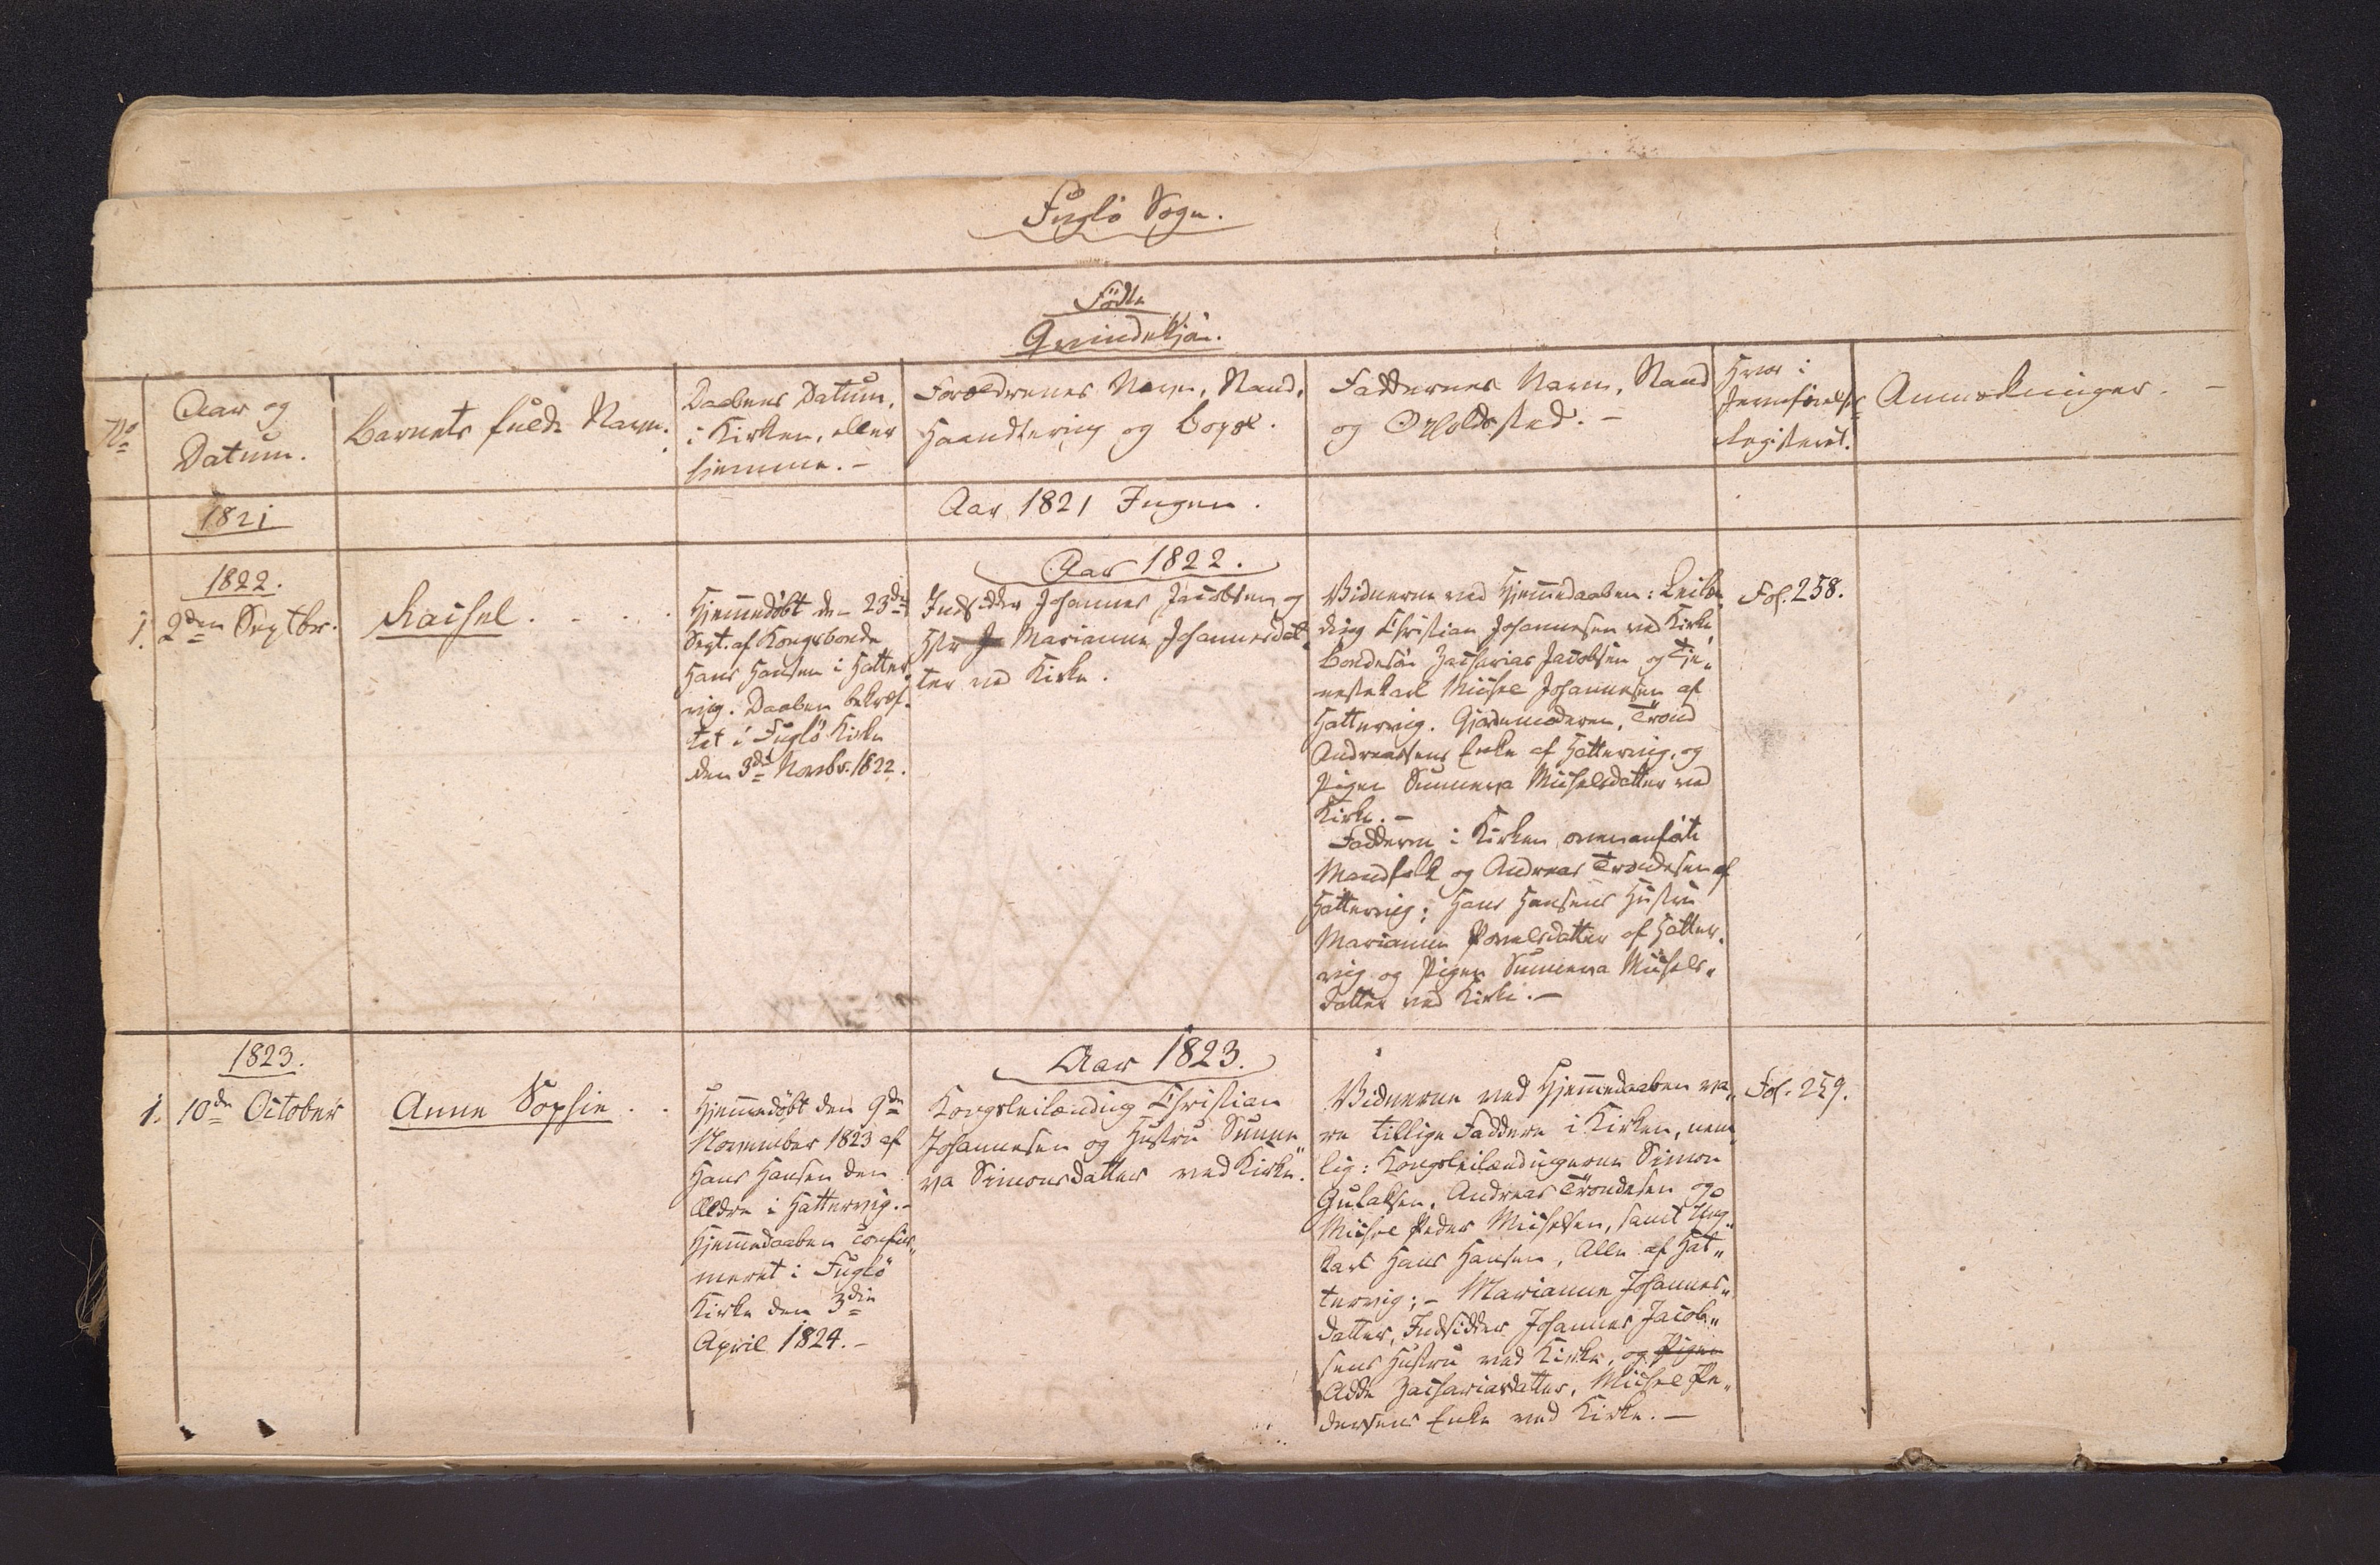 Fuglö Sogn.
Födte
Qvindekjön.
No
Aar og
Datum.
Barnets fulde Navn.
Daabens Datum,
i Kirken, eller
hjemme. –
Forældrenes Navn, Stand,
Haandtering og Bopæl.
Faddernes Navn, Stand
og Opholdssted. –
Hvor i
Jevnførelses
Registeret.
Anmærkninger. –
1821
Aar 1821 Ingen.
1822.
Aar 1822.
1.
2den Septbr.
Rachel . . . .
Hjemmedöbt d. 23de
Sept. af Kongsbonde
Hans Hansen i Hatter
vig. Daaben bekræf-
tet i Fuglö Kirke
den 3die Novbr. 1822.
Indsidder Johannes Jacobsen og
Hstr Marianne Johannesdat
ter ved Kirke.
Vidnerne ved Hjemmedaaben: Leilæn
ding Christian Johannesen ved Kirke,
Bondesön Zacharias Jacobsen og Tje„
nestekarl Michel Johannesen af
Hattervig. Gjordemoderen, Trönd
Andreassens Enke af Hattervig, og
Pigen Sunneva Michelsdatter ved
Kirke. –
Fadderne i Kirken ovenanförte
Mandfolk og Andreas Tröndesen af
Hattervig; Hans Hansens Hustru
Marianne Povelsdatter af Hatter„
vig og Pigen Sunneva Michels„
datter ved Kirke. –
Fol. 258.
1823.
Aar 1823.
1.
10de October
Anne Sophie . .
Hjemmedöbt den 9de
November 1823 af
Hans Hansen den
Ældre i Hattervig. –
Hjemmedaaben confir„
meret i Fuglö
Kirke den 3die
April 1824. –
Kongsleilænding Christian
Johannesen og Hustru Sunne„
va Simonsdatter ved Kirke.
Vidnerne ved Hjemmedaaben va„
re tillige Faddere i Kirken, nem„
lig: Kongsleilændingerne Simon
Gulaksen, Andreas Tröndesen og
Michel Peder Michelsen, samt Ung„
karl Hans Hansen, Alle af Hat„
tervig; – Marianne Johannes„
datter, Indsidder Johannes Jacob„
sens Hustru ved Kirke, og Pigen
Adde Zachariasdatter, Michel Pe„
dersens Enke ved Kirke. –
Fol. 259.